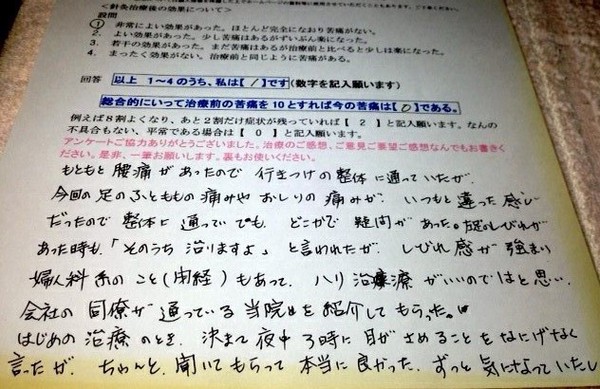 <針灸治療後の効果について>
設問
1. 非常によい効果があった。ほとんど完全になおり苦痛がない。
2. よい効果があった。少し苦痛はあるがずいぶん楽になった。
3. 若干の効果があった。まだ苦痛はあるが治療前と比べると少しは楽になった。
4. まったく効果がない。治療前と同じように苦痛がある。
回答 以上 1~4のうち、私は【 1 】です (数字を記入願います)
総合的にいって治療前の苦痛を10とすれば今の苦痛は【 0 】である。
例えば8割よくなり、あと2割だけ症状が残っていれば【 2 】と記入願います。なんの
不具合もない、平常である場合は【 0 】と記入願います。
アンケートご協力ありがとうございました。治療のご感想、ご意見ご要望ご感想なんでもお書きく
ださい。是非、一筆お願いします。裏もお使いください。
もともと腰痛があったので 行きつけの整体に通っていたが、
今回の足のふとももの痛みや おしりの痛みが、いつもと違った感じ
だったので 整体に通っていても、どこかで疑問があった。足のしびれが
あった時も、「そのうち治りますよ」と言われたが、しびれ感が強まり
婦人科系のこと(閉経)もあって、ハリ治療がいいのではと思い、
会社の同僚が通っている当院を紹介してもらった。
はじめの治療のとき、決まって夜中3時に目がさめることをなにげなく
言ったが、ちゃんと聞いてもらって本当に良かった。ずっと気になっていたし